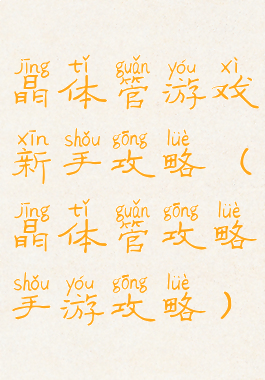 jīng tǐ guǎn yóu xì
晶体管游戏
xīn shǒu gōng lüè
新手攻略（
jīng tǐ guǎn gōng lüè
晶体管攻略
shǒu yóu gōng lüè
手游攻略）